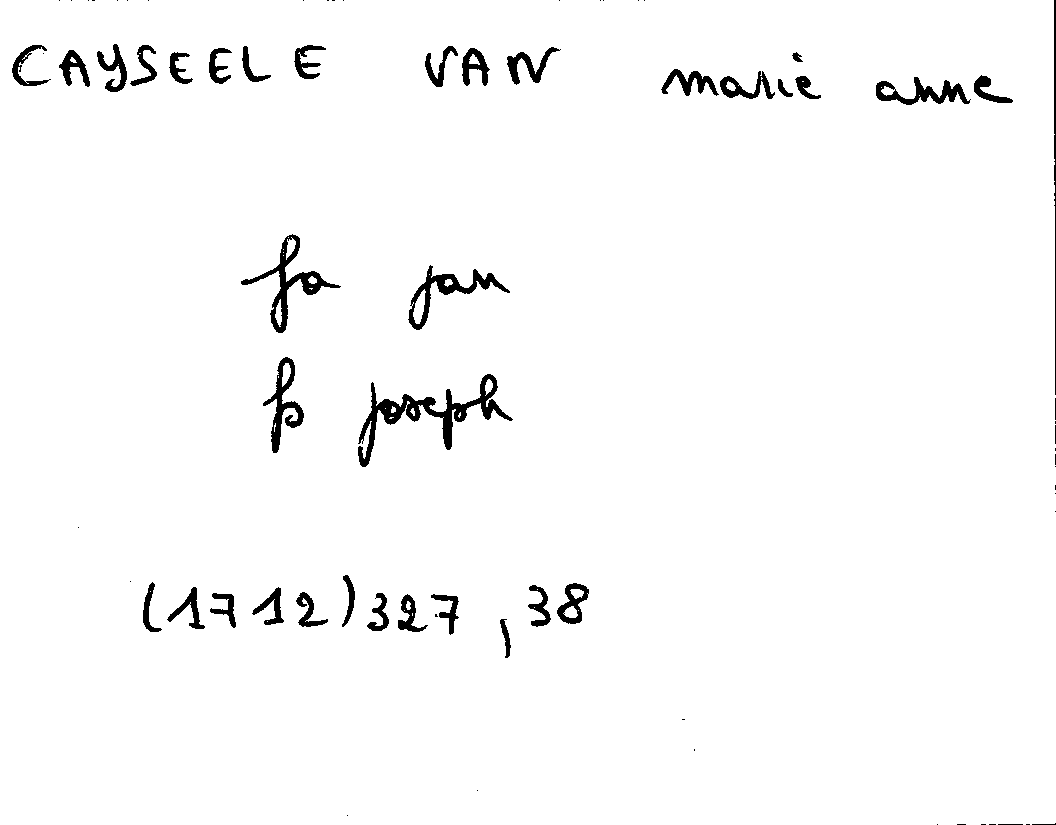 CAYSEELE VAN marie anne
fa jan
fs joseph
(1712)327,38